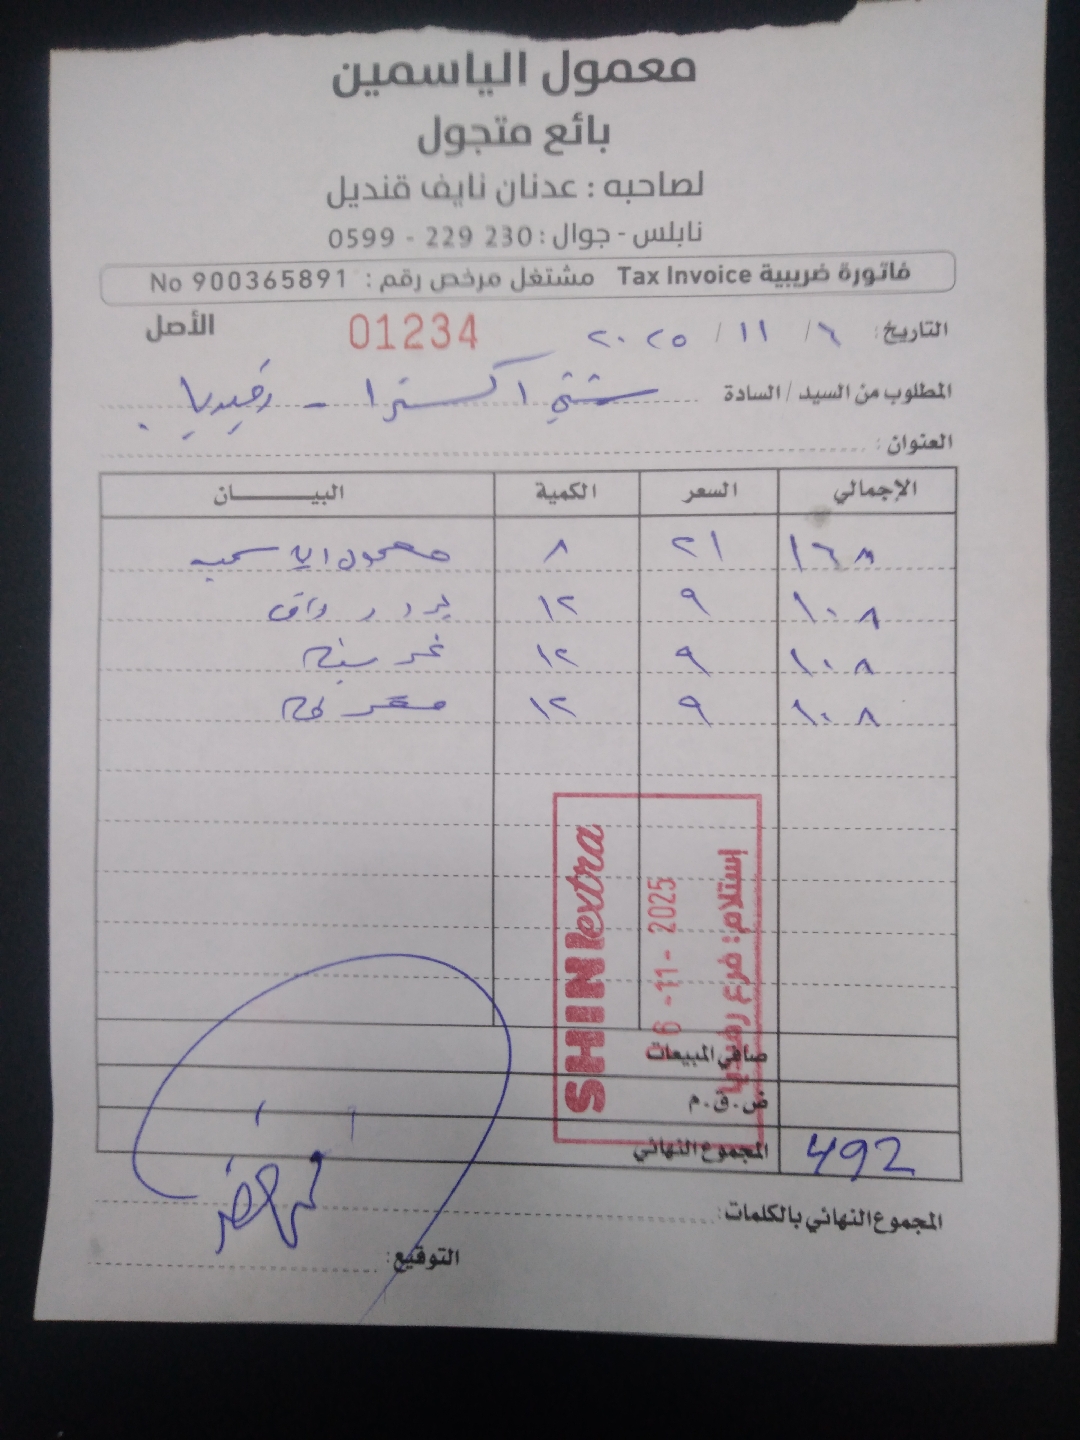 معمول الياسمين
بائع متجول
لصاحبه : عدنان نايف قنديل
نابلس - جوال : 230 229 - 0599
فاتورة ضريبية Tax Invoice مشتغل مرخص رقم : No 900365891
التاريخ : ٦ / ١١ / ٢٠٢٥ 01234 الأصل
المطلوب من السيد / السادة شني اكسترا - رفيديا
العنوان :
الإجمالي السعر الكمية البيـــــــان
١٦٨ ٢١ ٨ معمول
١٠٨ ٩ ١٢
١٠٨ ٩ ١٢
١٠٨ ٩ ١٢
SHINI extra
6 -11- 2025
إستلام: فرع رفيديا
صافي المبيعات
ض.ق.م
المجموع النهائي 492
المجموع النهائي بالكلمات:
التوقيع: